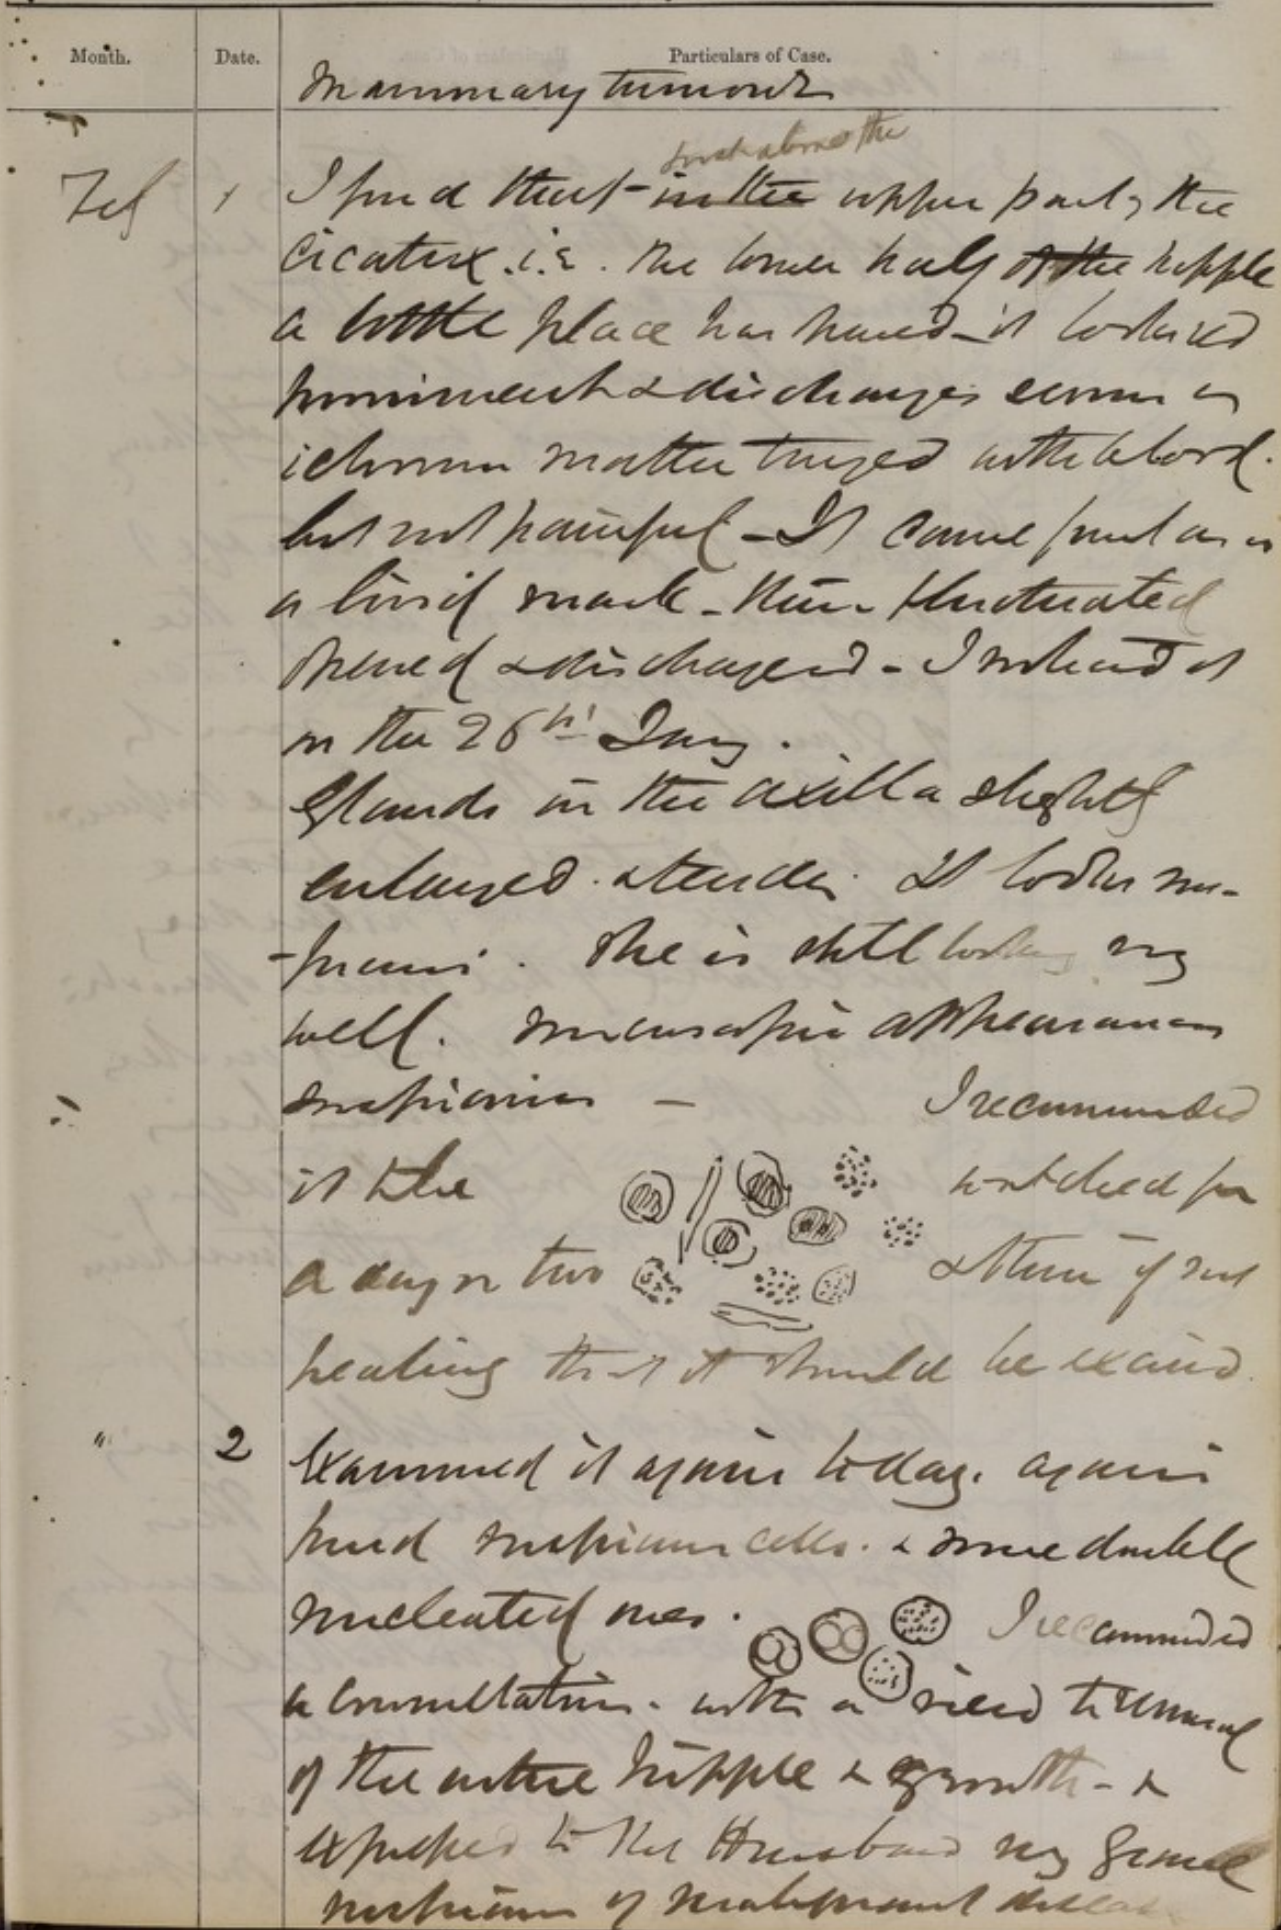 Month. Date. Particulars of Case.
Mammary tumour
just above the
Feb 1 I find that - in the upper part of the
cicatrix. i.e. the lower half of the nipple
a little place has - it looks red
prominent & discharges serum or
ichorous matter tinged with blood.
but not painful - It came first as
a livid mark - then fluctuated
opened & discharged - I noticed it
on the 26th Jany.
Glands in the axilla slightly
enlarged. & tender. It looks sus-
-picious. She is still looking very
well. Microscopic appearances
suspicious - I recommended
it to be watched for
a day or two & then if not
healing that it should be excised.
" 2 Examined it again today. again
found suspicious cells. & some double
nucleated ones. I recommended
a consultation. with a view to removal
of the entire nipple & growth - &
expressed to the Husband my grave
suspicions of malignant disease